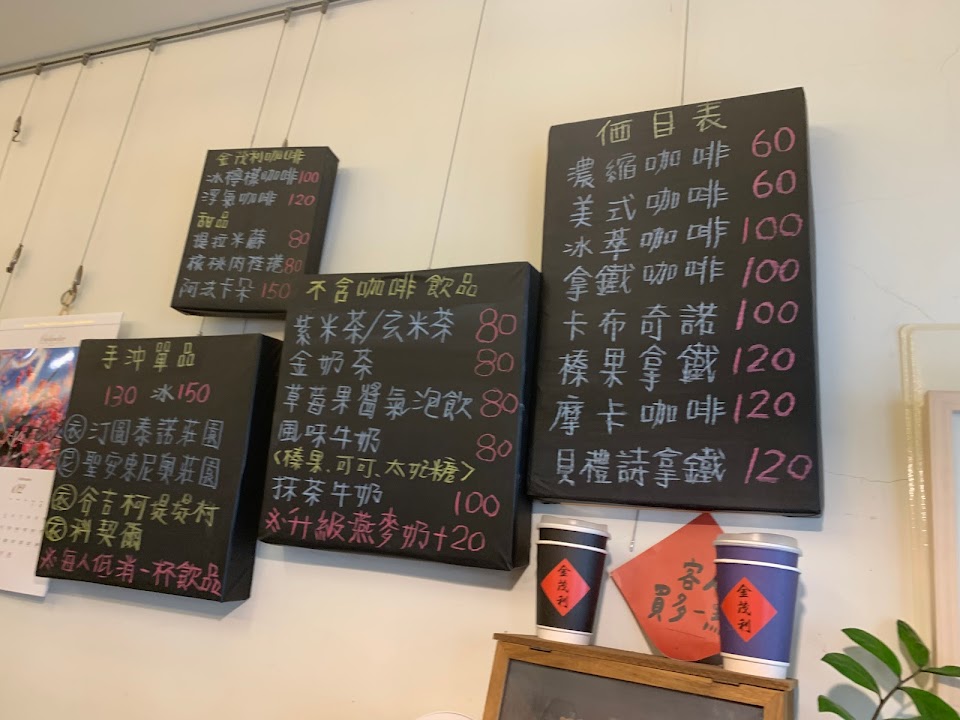 金茂利咖啡
冰檸檬咖啡100
浮氣咖啡 120
甜品
提拉米蘇 80
核桃肉桂捲80
阿法卡朵 150
手沖單品
130 冰150
汀圖泰諾莊園
尼 聖安東尼奧莊園
谷吉柯提提村
利契爾
※每人低消一杯飲品
不含咖啡飲品
紫米茶/玄米茶 80
金奶茶 80
草莓果醬氣泡飲 80
風味牛奶 80
<榛果.可可.太妃糖>
抹茶牛奶 100
※升級燕麥奶+20
価目表
濃縮咖啡 60
美式咖啡 60
冰萃咖啡 100
拿鐵咖啡 100
卡布奇諾 100
榛果拿鐵 120
摩卡咖啡 120
貝禮詩拿鐵 120
金茂利
客人
買多一點
金茂利